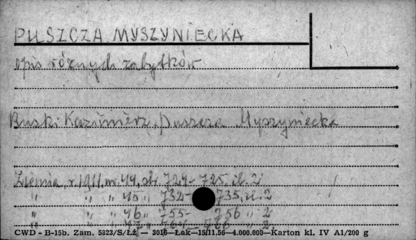 PUSZCZA MYSZYNIECKA
opis różnych zabytków
Buski Kazimierz, Puszcza Myszyniecka
Ziemia, r. 1911, nr. 44, str. 724-725, il. 2
" " 45 " 732-735, il. 2
" " 46 " 755-756 " 2
" " 47 "
CWD - B-15b. Zam. 5023/S/Łź. — 3018 — Łak — 15/11.56 — 4.000.000 — Karton kl. IV A1/200 g